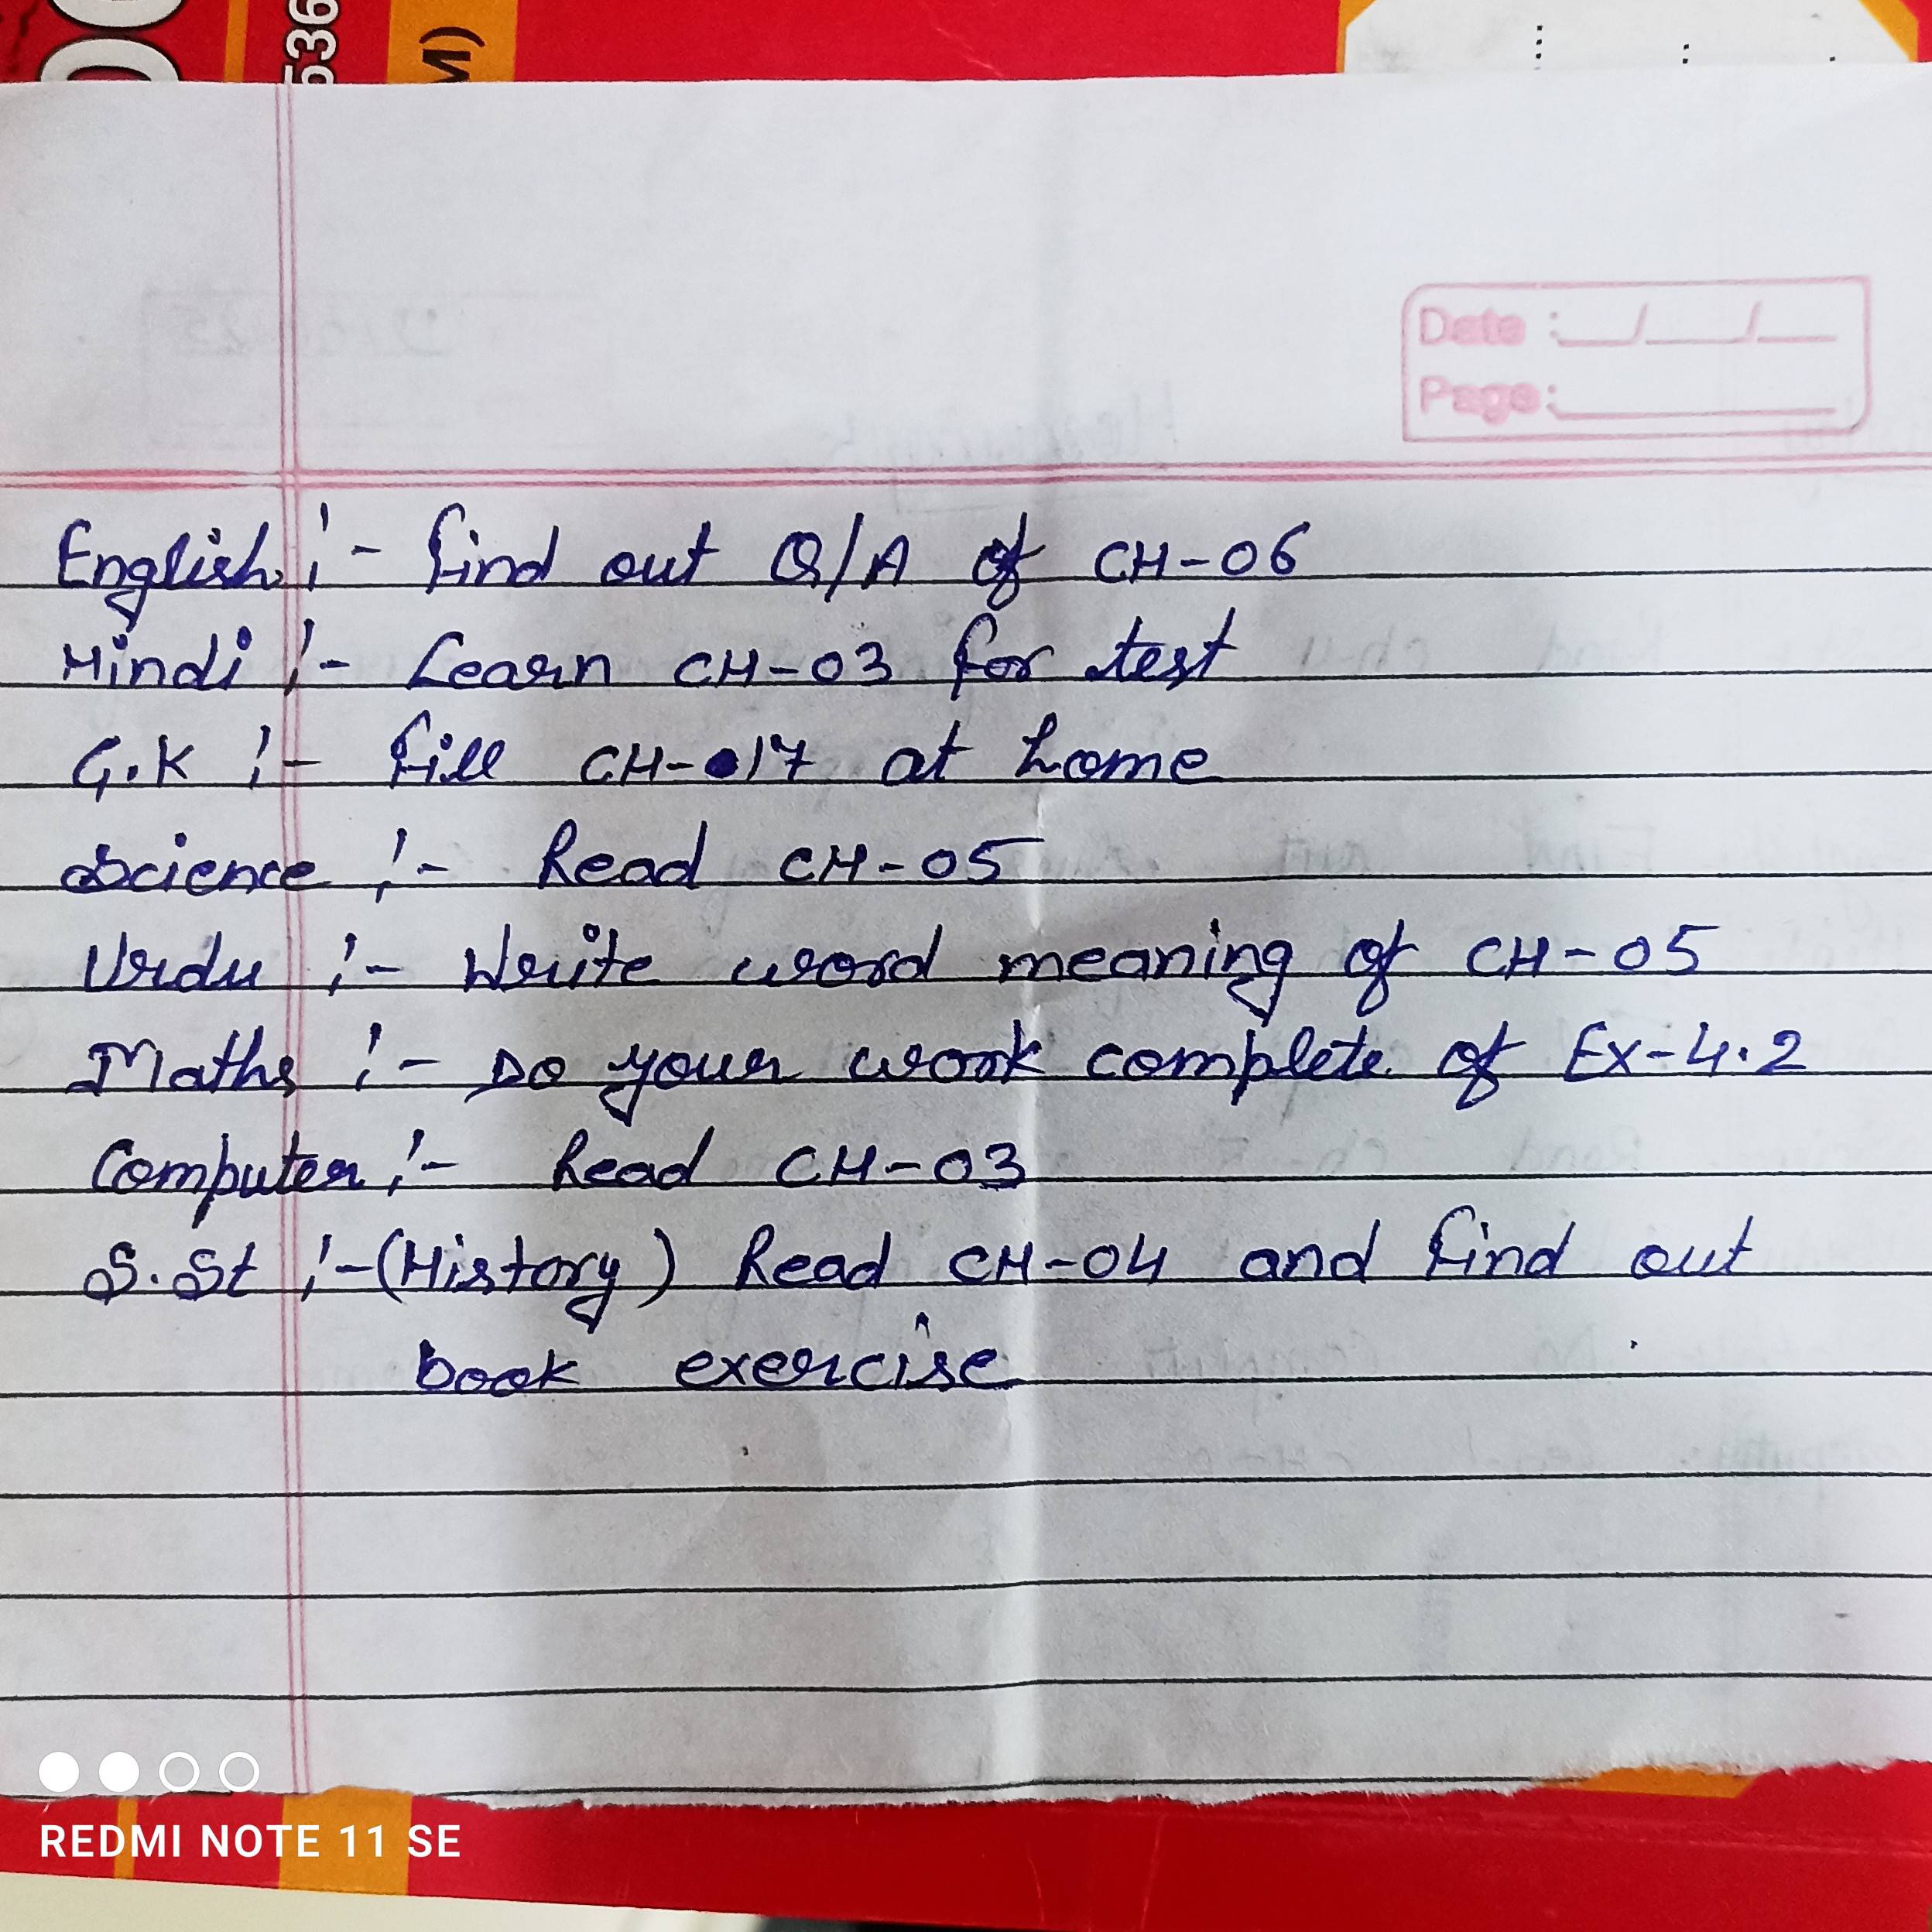 536
M)
Date :__/__/__
Page:
English :- Find out Q/A of CH-06
Hindi :- Learn CH-03 for test
G.K :- Fill CH-17 at home
Science :- Read CH-05
Urdu :- Write word meaning of CH-05
Maths :- Do your work complete of Ex-4.2
Computer :- Read CH-03
S.St :- (History) Read CH-04 and find out
book exercise
REDMI NOTE 11 SE